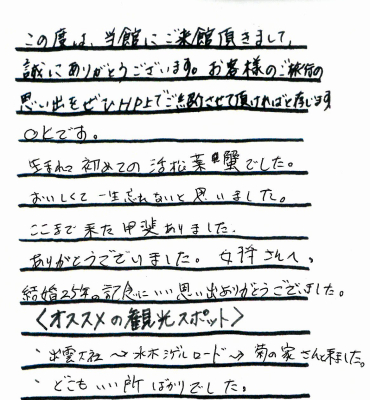 この度は、当館にご来館頂きまして、
誠にありがとうございます。お客様のご旅行の
思い出をぜひHP上でご紹介させて頂ければと存じます
OKです。
生まれて初めての活松葉蟹でした。
おいしくて一生忘れないと思いました。
ここまで来た甲斐ありました.
ありがとうございました。女将さんへ、
結婚25年の記念にいい思い出ありがとうございました。
〈オススメの観光スポット〉
、出雲大社→水木シゲルロード→菊の家さんへ来ました。
、どこもいい所ばかりでした。